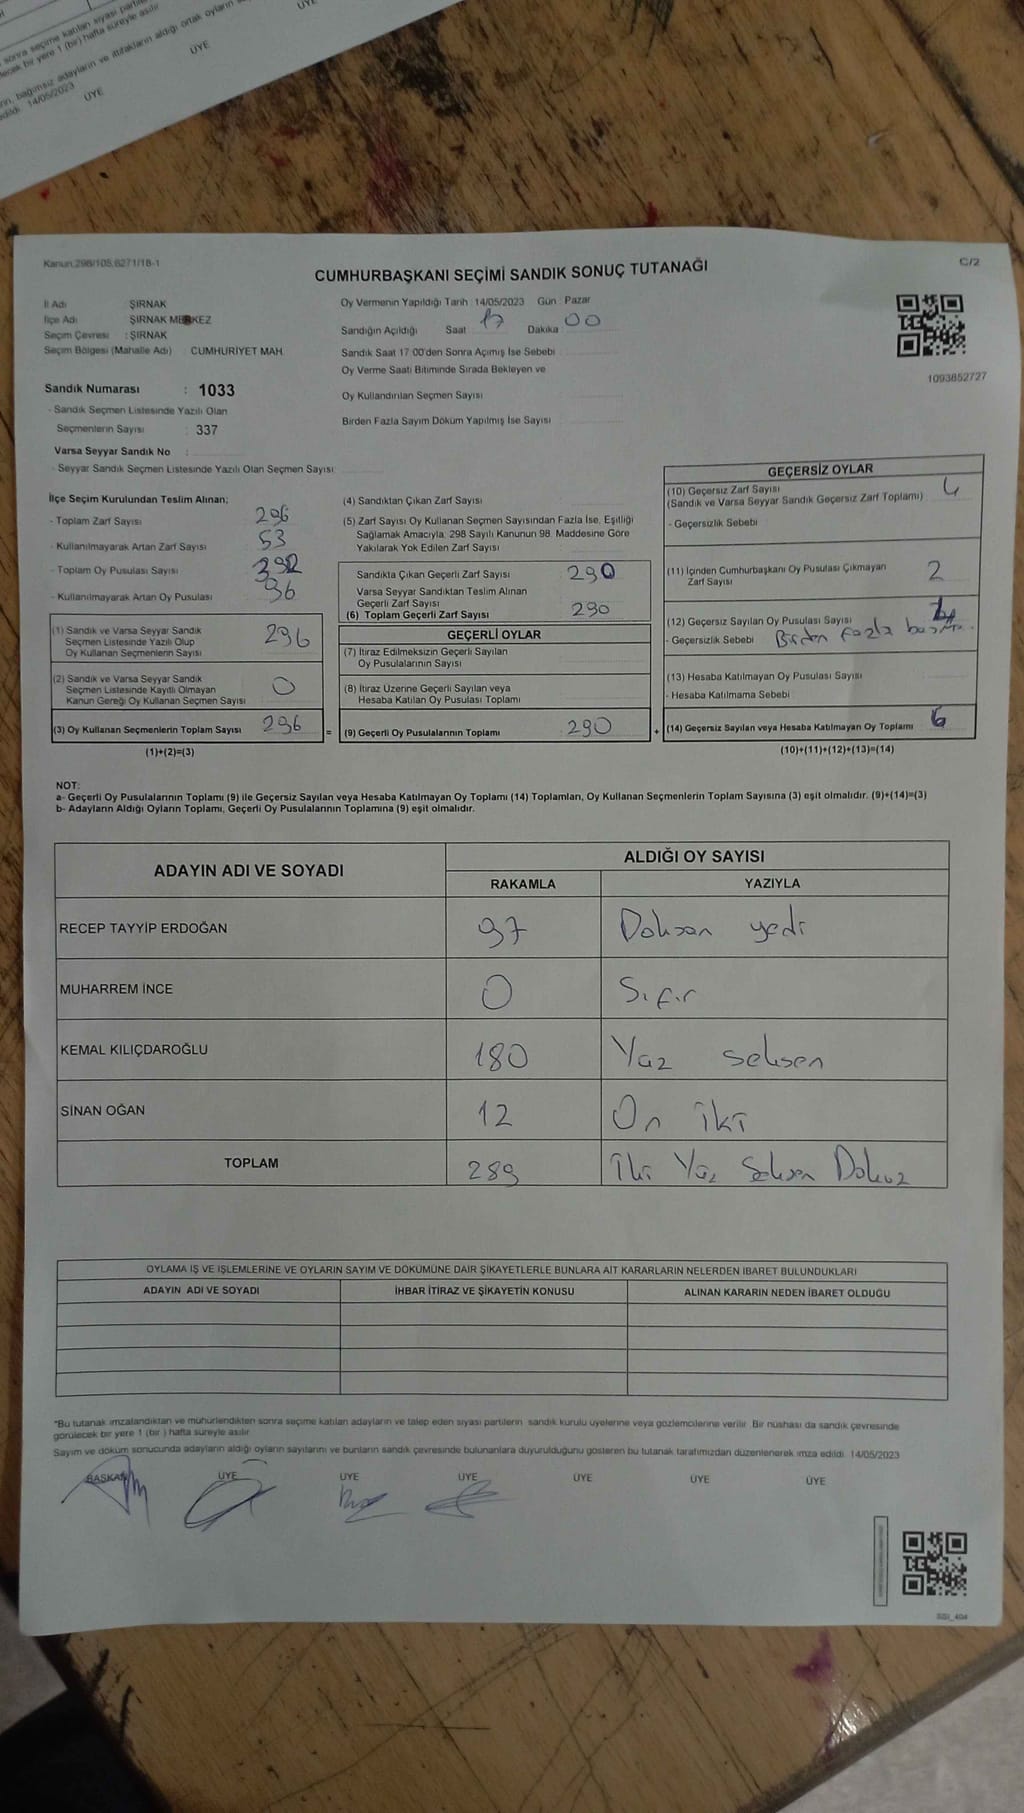 sonra seçime katılan siyasi partile
lecek bir yere 1 (bir) hafta süreyle asılır
rın, bağımsız adayların ve ittifakların aldığı ortak oyların
edildi. 14/05/2023
ÜYE
ÜYE
ÜYE
Kanun,298/105,6271/18-1
C/2
CUMHURBAŞKANI SEÇİMİ SANDIK SONUÇ TUTANAĞI
İl Adı : ŞIRNAK
İlçe Adı : ŞIRNAK MERKEZ
Seçim Çevresi : ŞIRNAK
Seçim Bölgesi (Mahalle Adı) : CUMHURİYET MAH.
Oy Vermenin Yapıldığı Tarih : 14/05/2023 Gün : Pazar
Sandığın Açıldığı Saat 17 Dakika 00
Sandık Saat 17:00'den Sonra Açımış İse Sebebi
Oy Verme Saati Bitiminde Sırada Bekleyen ve
Oy Kullandırılan Seçmen Sayısı
Birden Fazla Sayım Döküm Yapılmış İse Sayısı
1093852727
Sandık Numarası : 1033
- Sandık Seçmen Listesinde Yazılı Olan
Seçmenlerin Sayısı : 337
Varsa Seyyar Sandık No :
- Seyyar Sandık Seçmen Listesinde Yazılı Olan Seçmen Sayısı:
İlçe Seçim Kurulundan Teslim Alınan;
- Toplam Zarf Sayısı
- Kullanılmayarak Artan Zarf Sayısı 53
- Toplam Oy Pusulası Sayısı
- Kullanılmayarak Artan Oy Pusulası 96
(1) Sandık ve Varsa Seyyar Sandık
Seçmen Listesinde Yazılı Olup
Oy Kullanan Seçmenlerin Sayısı 296
(2) Sandık ve Varsa Seyyar Sandık
Seçmen Listesinde Kayıtlı Olmayan
Kanun Gereği Oy Kullanan Seçmen Sayısı 0
(3) Oy Kullanan Seçmenlerin Toplam Sayısı 296
(1)+(2)=(3)
=
(4) Sandıktan Çıkan Zarf Sayısı
(5) Zarf Sayısı Oy Kullanan Seçmen Sayısından Fazla İse, Eşitliği
Sağlamak Amacıyla, 298 Sayılı Kanunun 98. Maddesine Göre
Yakılarak Yok Edilen Zarf Sayısı
Sandıkta Çıkan Geçerli Zarf Sayısı 290
Varsa Seyyar Sandıktan Teslim Alınan
Geçerli Zarf Sayısı
(6) Toplam Geçerli Zarf Sayısı 290
GEÇERLİ OYLAR
(7) İtiraz Edilmeksizin Geçerli Sayılan
Oy Pusulalarının Sayısı
(8) İtiraz Üzerine Geçerli Sayılan veya
Hesaba Katılan Oy Pusulası Toplamı
(9) Geçerli Oy Pusulalarının Toplamı 290
+
GEÇERSİZ OYLAR
(10) Geçersiz Zarf Sayısı 4
(Sandık ve Varsa Seyyar Sandık Geçersiz Zarf Toplamı)
- Geçersizlik Sebebi
(11) İçinden Cumhurbaşkanı Oy Pusulası Çıkmayan
Zarf Sayısı 2
(12) Geçersiz Sayılan Oy Pusulası Sayısı
- Geçersizlik Sebebi Birden fazla
(13) Hesaba Katılmayan Oy Pusulası Sayısı
- Hesaba Katılmama Sebebi
(14) Geçersiz Sayılan veya Hesaba Katılmayan Oy Toplamı 6
(10)+(11)+(12)+(13)=(14)
NOT:
a- Geçerli Oy Pusulalarının Toplamı (9) ile Geçersiz Sayılan veya Hesaba Katılmayan Oy Toplamı (14) Toplamları, Oy Kullanan Seçmenlerin Toplam Sayısına (3) eşit olmalıdır. (9)+(14)=(3)
b- Adayların Aldığı Oyların Toplamı, Geçerli Oy Pusulalarının Toplamına (9) eşit olmalıdır.
ADAYIN ADI VE SOYADI ALDIĞI OY SAYISI
RAKAMLA YAZIYLA
RECEP TAYYİP ERDOĞAN 97 Doksan yedi
MUHARREM İNCE 0 Sıfır
KEMAL KILIÇDAROĞLU 180 Yüz seksen
SİNAN OĞAN 12 On iki
TOPLAM 289 İki Yüz Seksen Dokuz
OYLAMA İŞ VE İŞLEMLERİNE VE OYLARIN SAYIM VE DÖKÜMÜNE DAİR ŞİKAYETLERLE BUNLARA AİT KARARLARIN NELERDEN İBARET BULUNDUKLARI
ADAYIN ADI VE SOYADI İHBAR İTİRAZ VE ŞİKAYETİN KONUSU ALINAN KARARIN NEDEN İBARET OLDUĞU
*Bu tutanak imzalandıktan ve mühürlendikten sonra seçime katılan adayların ve talep eden siyasi partilerin sandık kurulu üyelerine veya gözlemcilerine verilir. Bir nüshası da sandık çevresinde
görülecek bir yere 1 (bir ) hafta süreyle asılır.
Sayım ve döküm sonucunda adayların aldığı oyların sayılarını ve bunların sandık çevresinde bulunanlara duyurulduğunu gösteren bu tutanak tarafımızdan düzenlenerek imza edildi. 14/05/2023
BAŞKAN ÜYE ÜYE ÜYE ÜYE ÜYE ÜYE
SSI_404